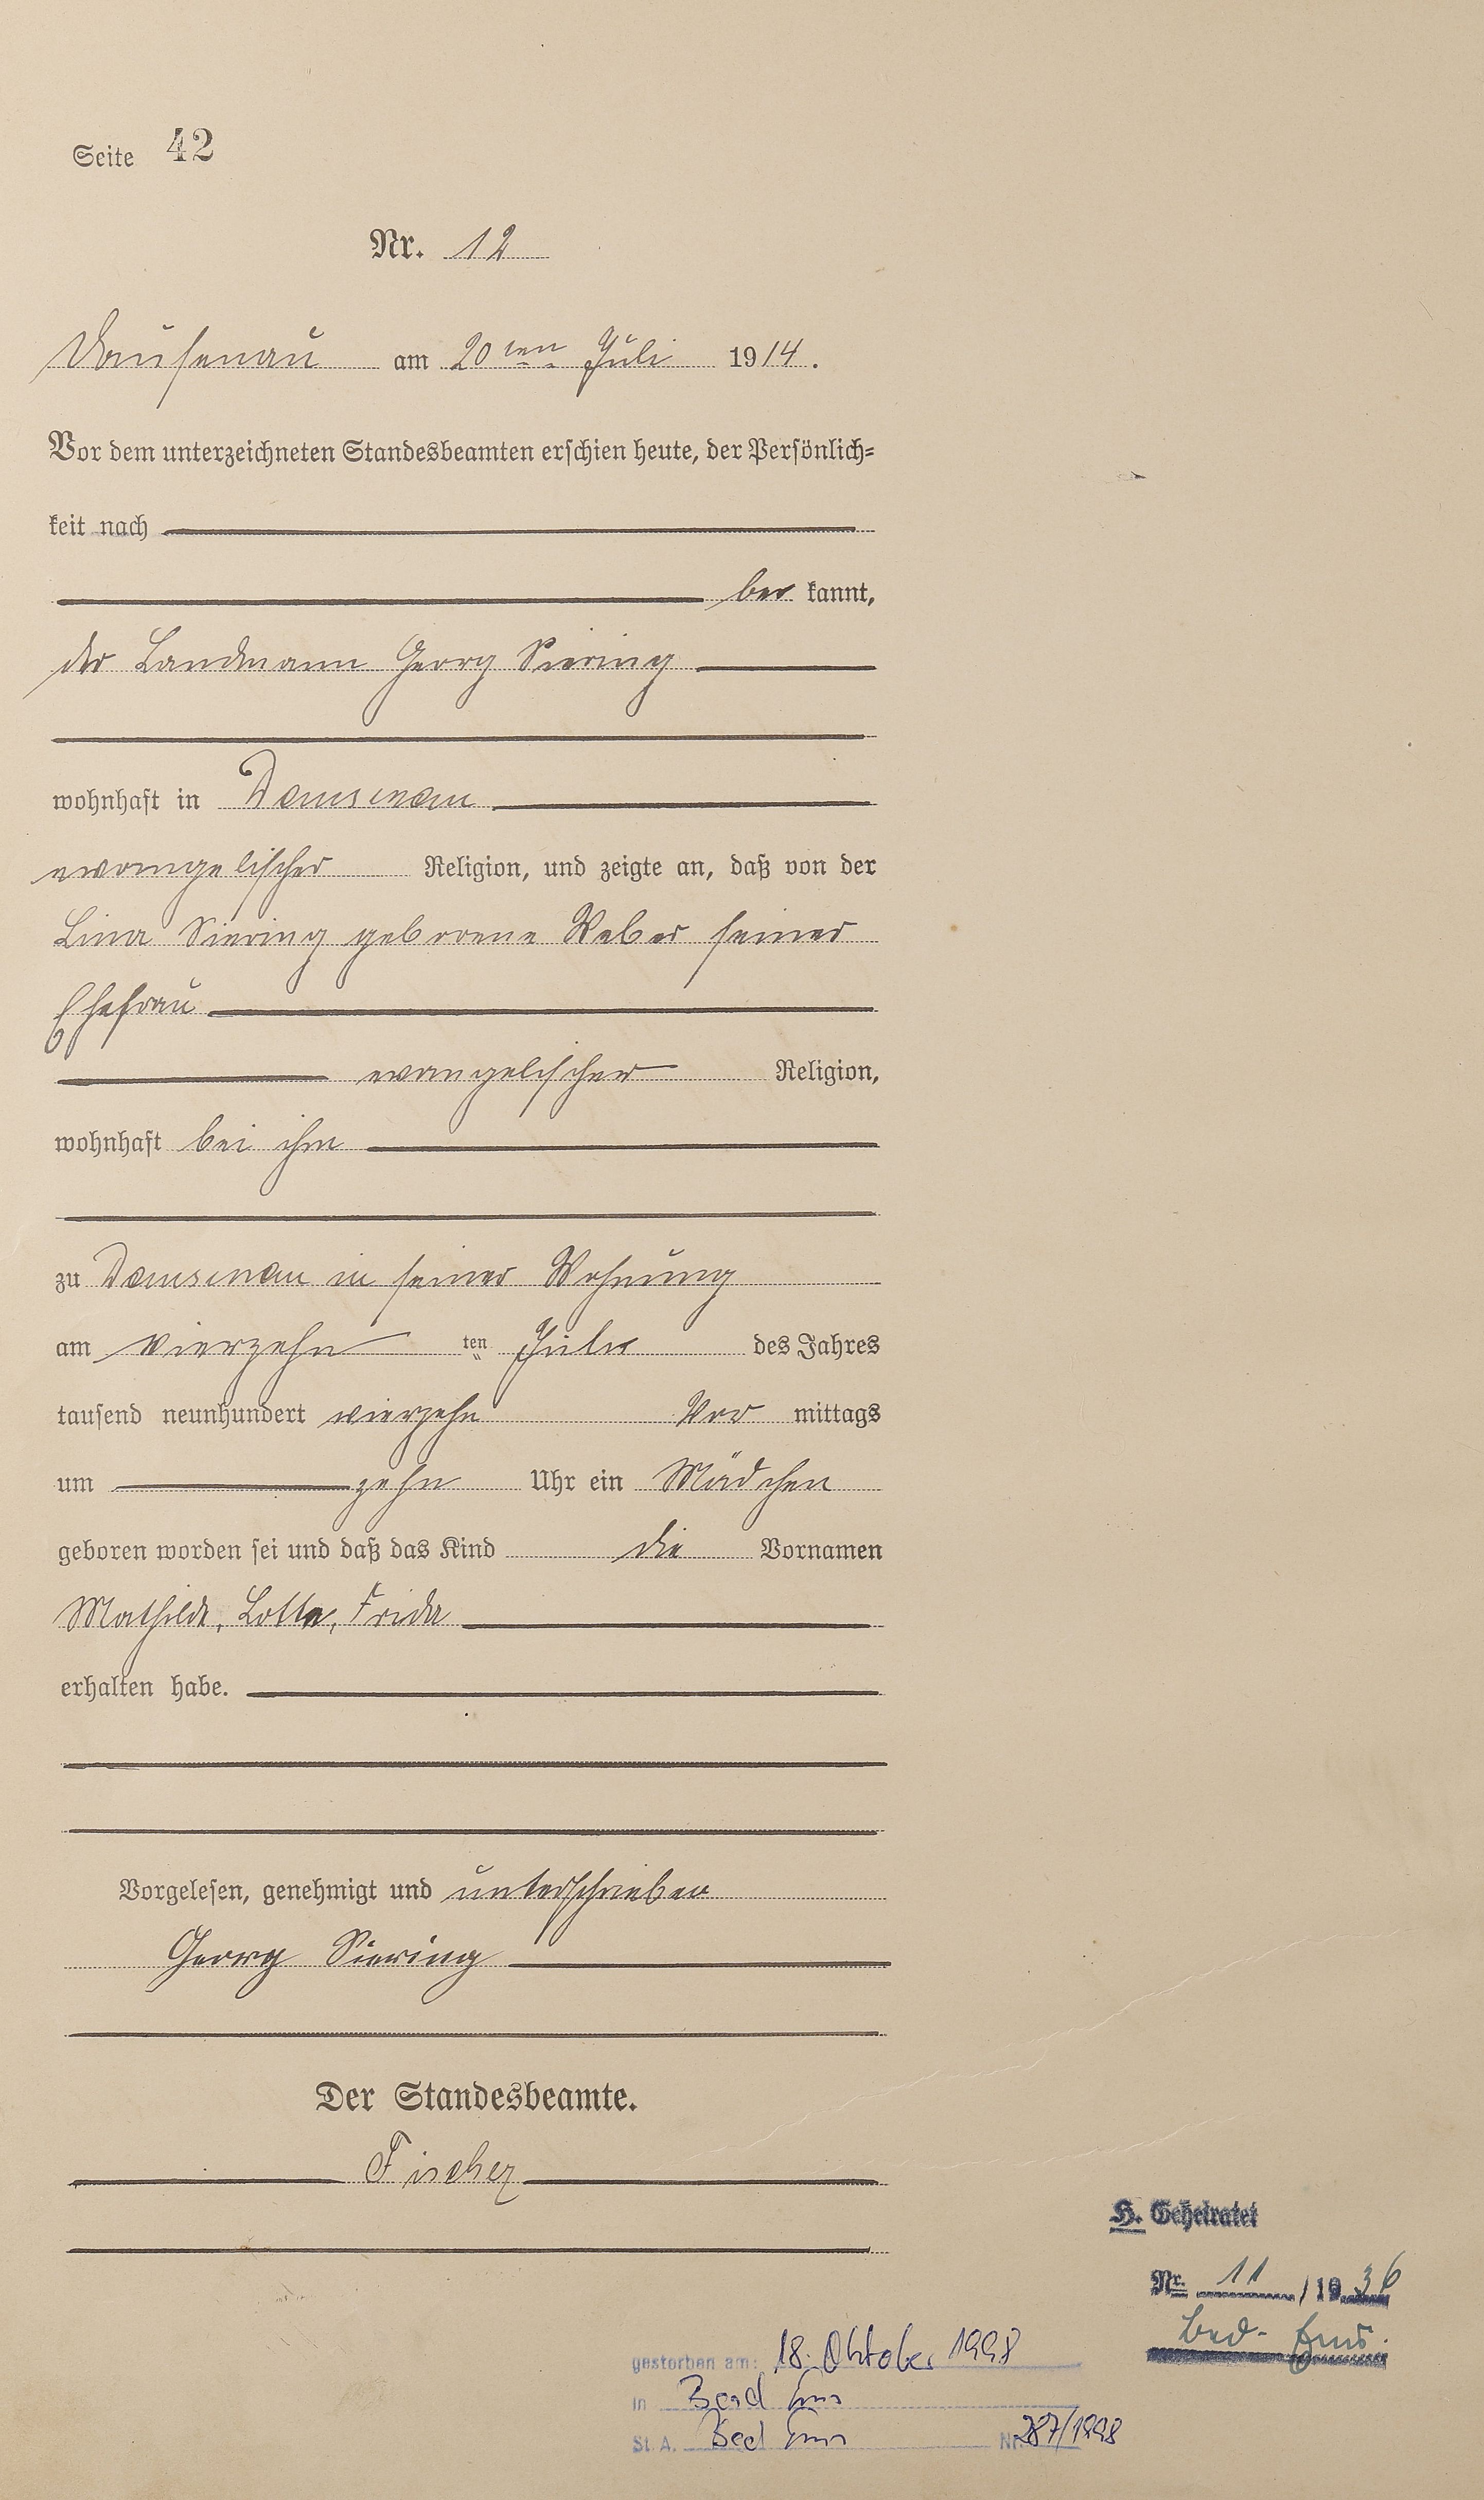 Seite 42
Nr. 12
Dausenau am 20ten Juli 1914.
Vor dem unterzeichneten Standesbeamten erschien heute, der Persönlich=
keit nach
be kannt,
der Landmann Georg Siering
wohnhaft in Dausenau
evangelischer Religion, und zeigte an, daß von der
Lina Siering geborene Weber seiner
Ehefrau
evangelischer Religion,
wohnhaft bei ihm
zu Dausenau in seiner Wohnung
am vierzehn ten Juli des Jahres
tausend neunhundert vierzehn Vor mittags
um zehn Uhr ein Mädchen
geboren worden sei und daß das Kind die Vornamen
Mathilde, Lotte, Frida
erhalten habe.
Vorgelesen, genehmigt und unterschrieben
Georg Siering
Der Standesbeamte.
Fischer
H. Geheiratet
Nr. 11 / 1936
Bad-Ems.
gestorben am: 18. Oktober 1998
in Bad Ems
St. A. Bad Ems Nr. 287/1998